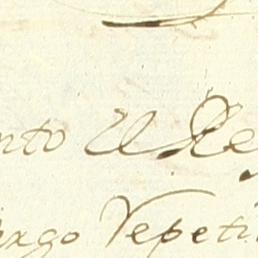 nto el Re
argo Vepeti